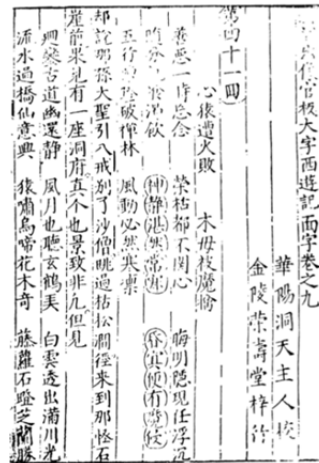 官板大字西遊記面字卷之九
華陽洞天主人 校
金陵榮壽堂 梓行
第四十一回
心猿遭火敗 木母被魔擒
善惡一時忘念 榮枯都不關心 晦明隱現任浮沉
隨分飢餐渴飲 神靜湛然常寂 昏冥便有魔侵
五行蹭蹬破禪林 風動必然寒凜
却說那孫大聖引八戒別了沙僧跳過枯松澗徑來到那怪石
崖前果見有一座洞府真个也景致非凡但見
迴鑾古道幽還靜 風月也聽玄鶴弄 白雲透出滿川光
流水過橋仙意興 猿嘯鳥啼花木奇 藤蘿石蹬芝蘭勝